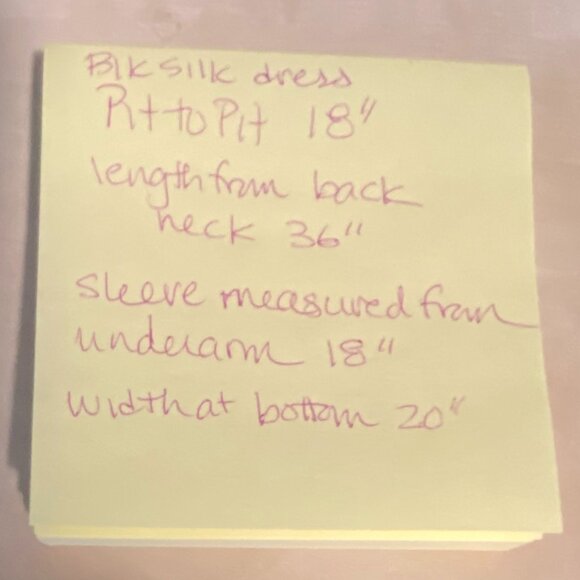 Blk silk dress
Pit to Pit 18"
length from back
neck 36"
sleeve measured from
underarm 18"
width at bottom 20"